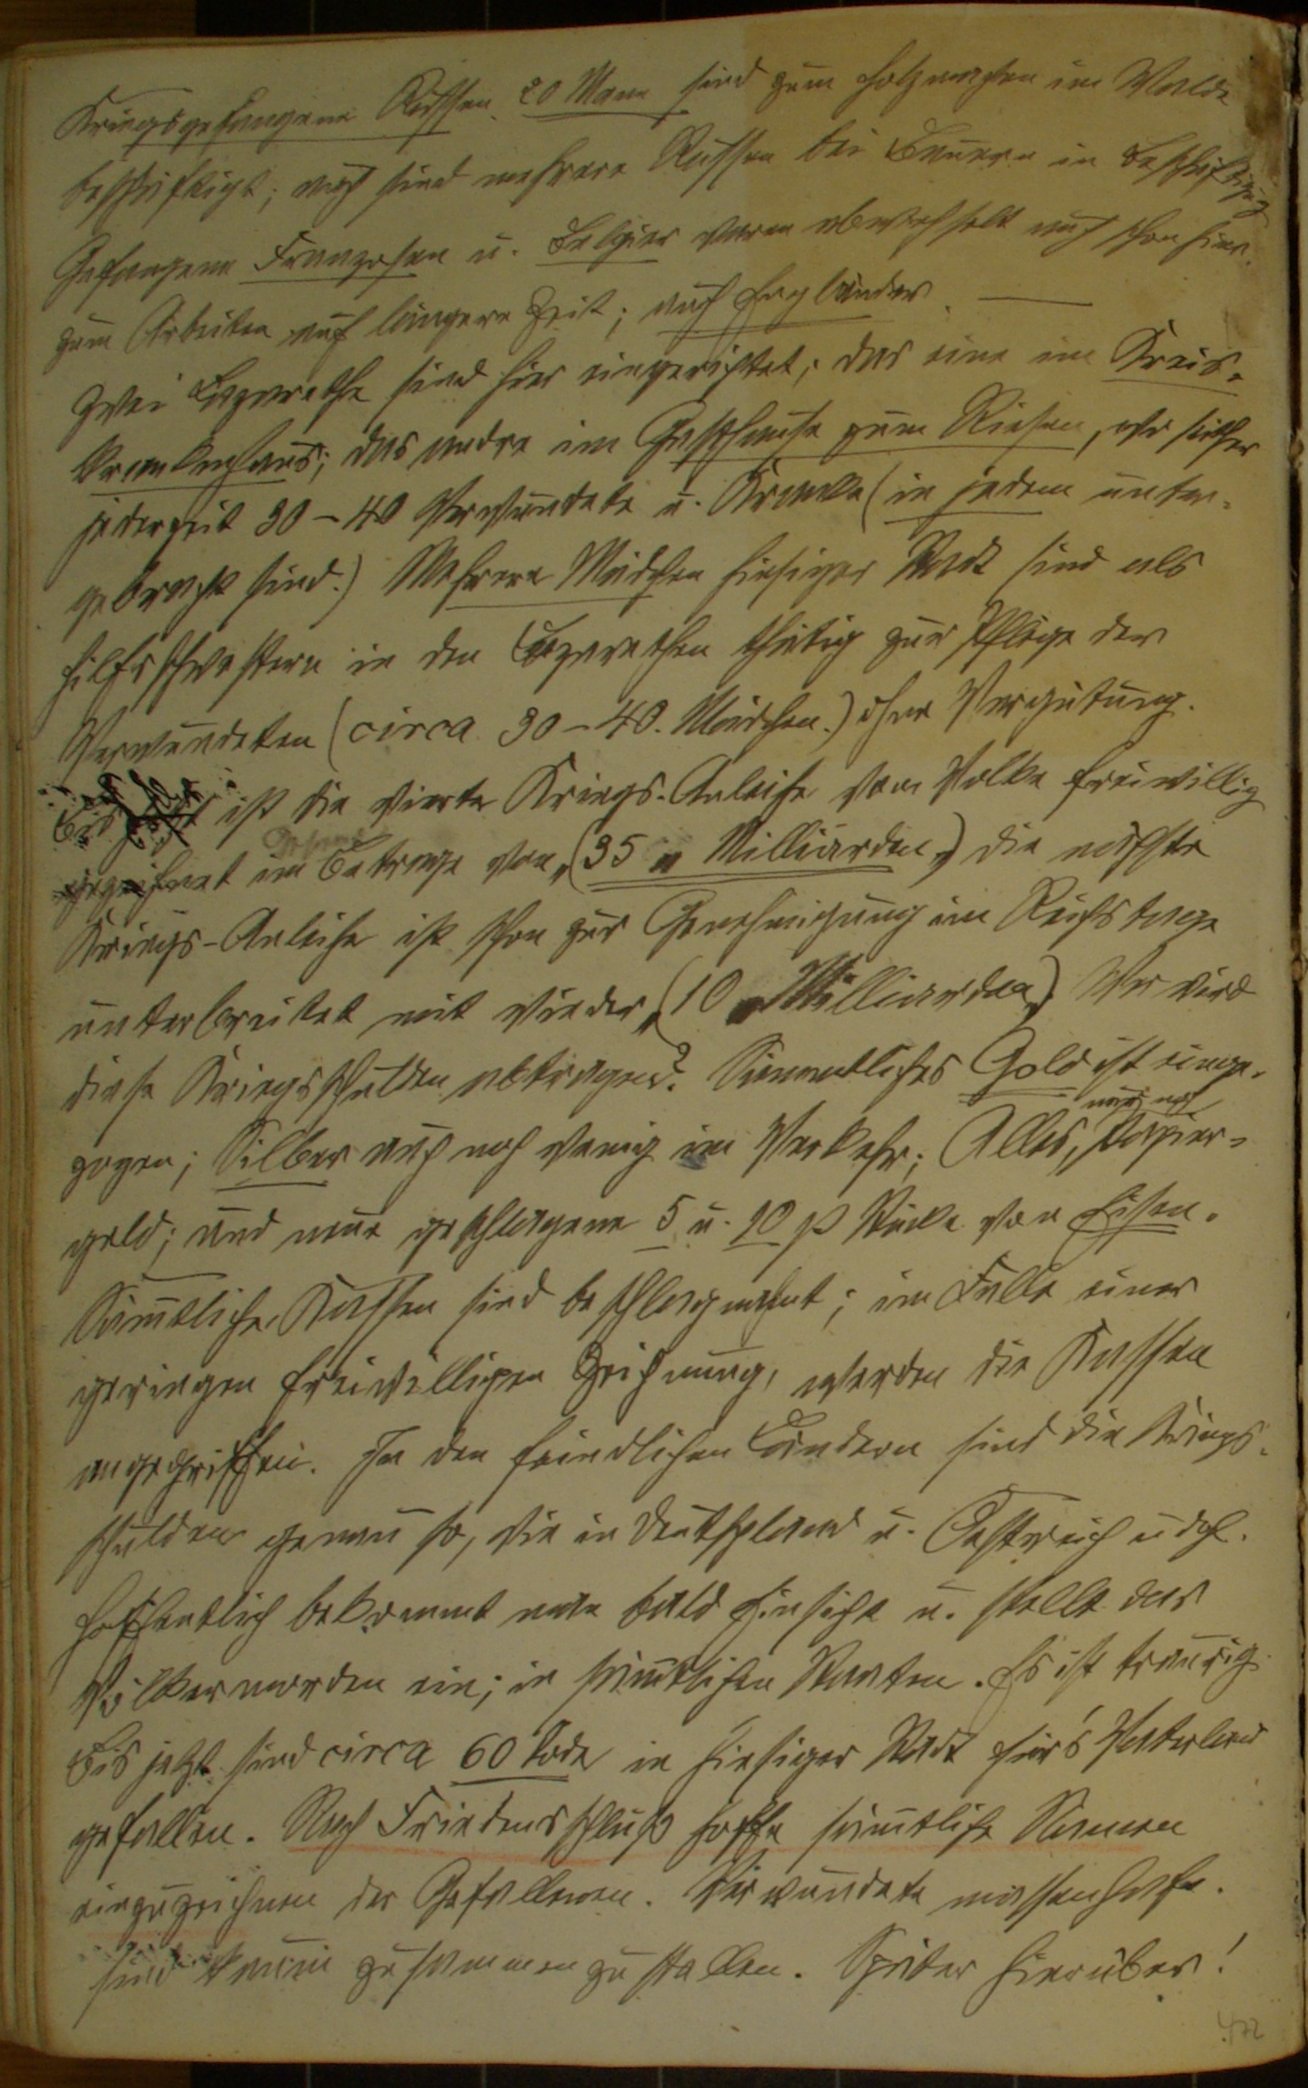 Kriegsgefangene Russen 20 Mann sind zum Holzmachen im Walde
beschäftigt; auch sind mehrere Russen bei Bauern in Beschäftigung
Gefangene Franzosen u. Belgier waren abwechselt auch schon hier.
zum Arbeiten auf längere Zeit; auch Engländer. —
Zwei Lazarethe sind hier eingerichtet; das eine im Kreis-
krankenhaus; das andre im Gasthause zum Riesen, wo
jederzeit 30-40 Verwundete u. Kranke (in jedem unter-
gebracht sind.) Mehrere Mädchen hiesiger Stadt sind als
Hilfsschwestern in den Lazarethen thätig zur Pflege der
Verwundeten (circa 30-40. Mädchen.) ohne Vergütung.
ist die vierte Kriegs-Anleihe vom Volke freiwillig
gezeichnet im Betrage von „(35 „ Milliarden„) die nächste
Kriegs-Anleihe ist schon zur Genehmigung im Reichstage
unterbreitet mit wieder „(10 „ Milliarden„) Wer wird
diese Kriegsschulden abtragen? Sämmtliches Gold ist einge-
zogen; Silber auch noch wenig im Verkehr; Alles, nur noch Papier-
geld; und neue geschlagene 5 u. 10 p Stücke von Eisen.
Sämtliche Kassen sind beschlagnahmt; im Falle einer
geringen freiwilligen Zeichnung, werden die Kassen
angegriffen. In den feindlichen Ländern sind die Kriegs-
schulden genau so, wie in Deutschland u. Oestreich u dgl.
Hoffentlich bekommt man bald Einsicht u. stellt das
Völkermorden ein; in sämtlichen Staaten. Es ist traurig
Bis jetzt sind circa 60 Tode in hiesiger Stadt für's Vaterland
gefallen. Nach Friedensschluß hoffe sämtliche Namen
einzuzeichnen der Gefallenen. Verwundete massenhaft.
sind kaum zusammenzustellen. Später hierüber!
472